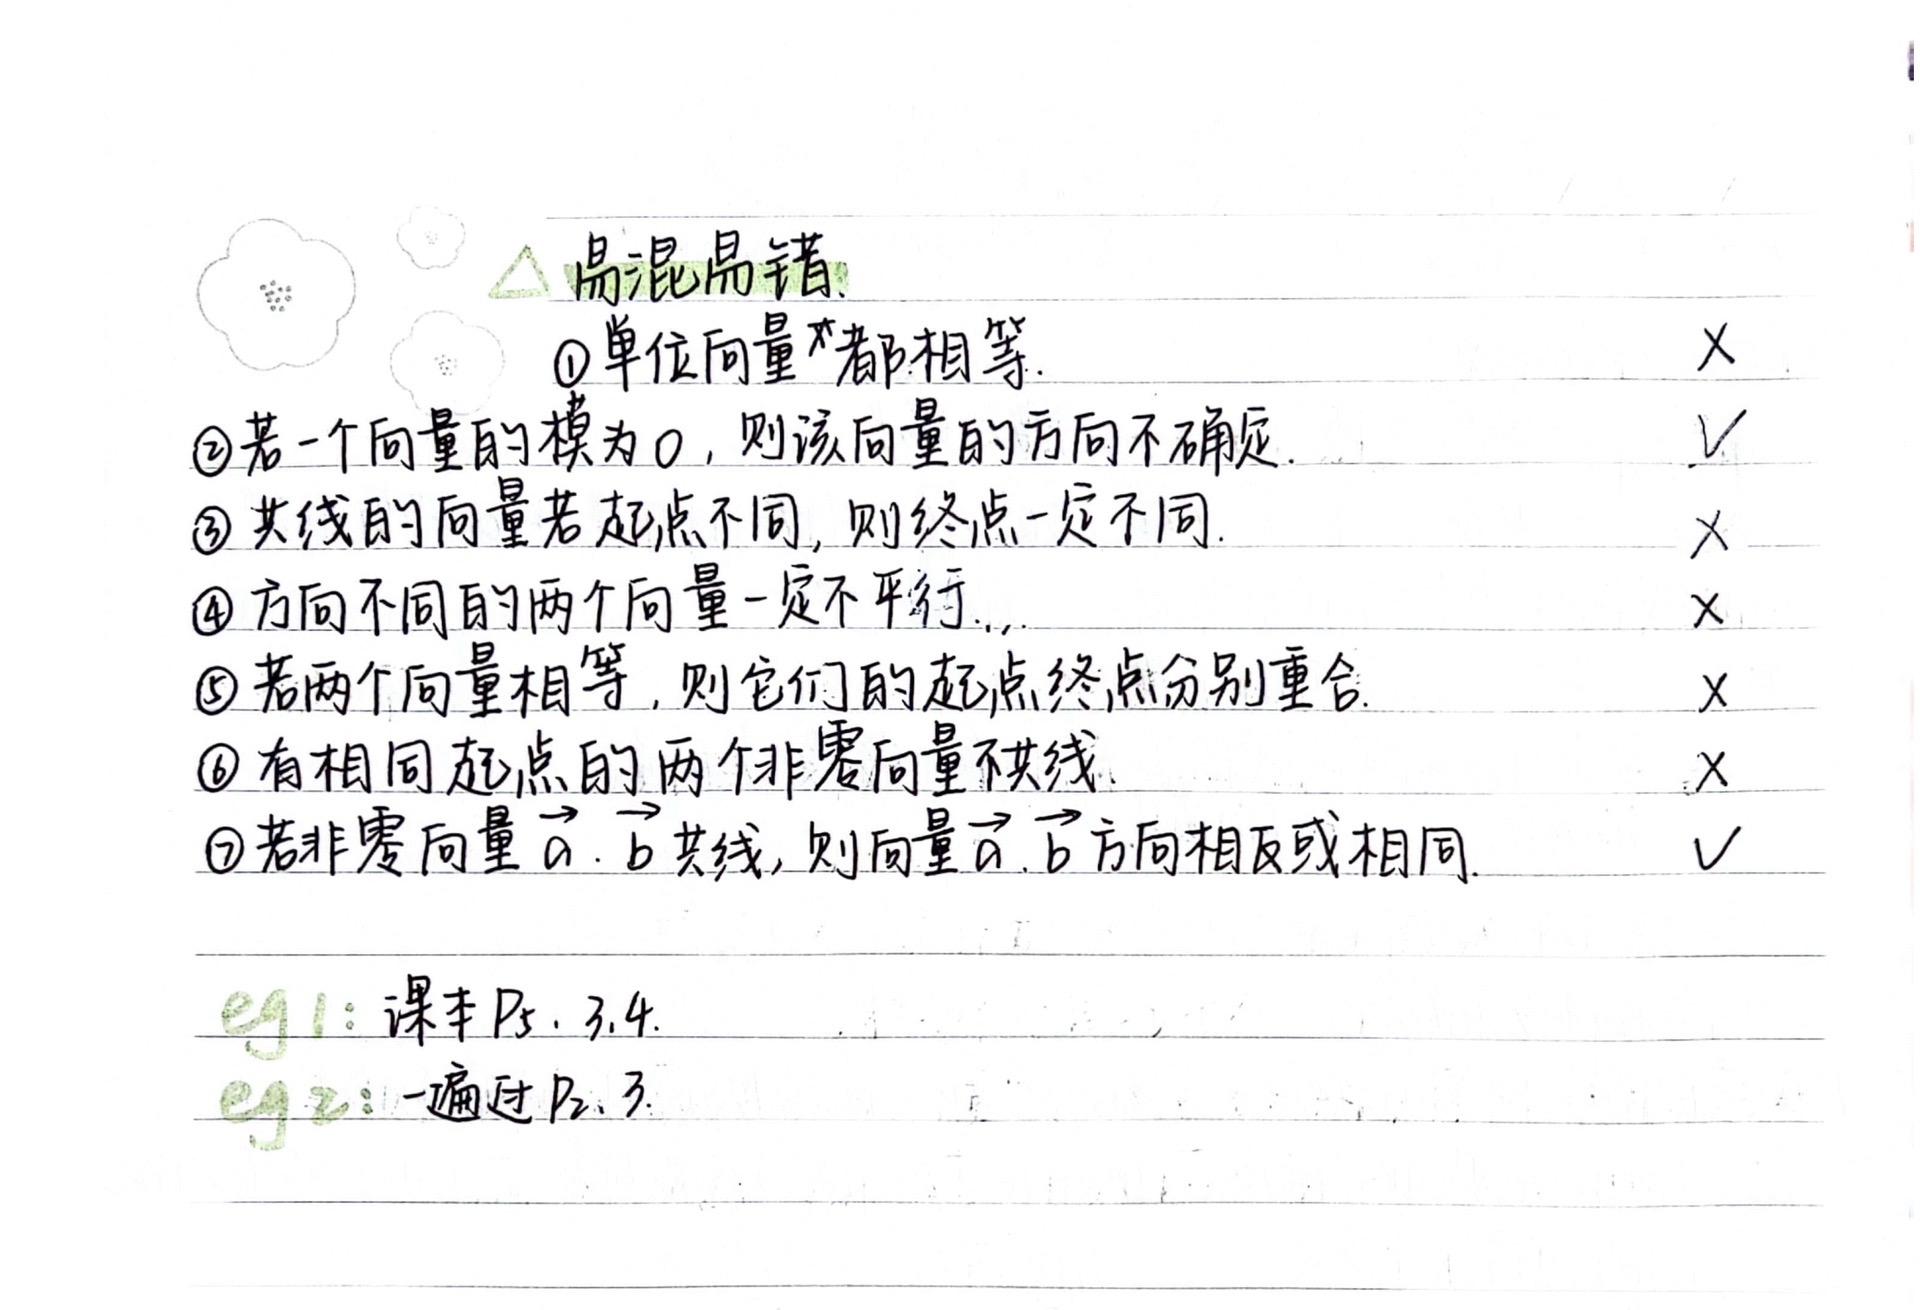 △ 易混易错.
①单位向量都相等. ×
②若一个向量的模为0,则该向量的方向不确定. √
③共线的向量若起点不同,则终点一定不同. ×
④方向不同的两个向量一定不平行. ×
⑤若两个向量相等,则它们的起点终点分别重合. ×
⑥有相同起点的两个非零向量不共线. ×
⑦若非零向量a⃗.b⃗共线,则向量a⃗.b⃗方向相反或相同. √
eg1: 课本P5. 3,4.
eg2: 一遍过P2、3.